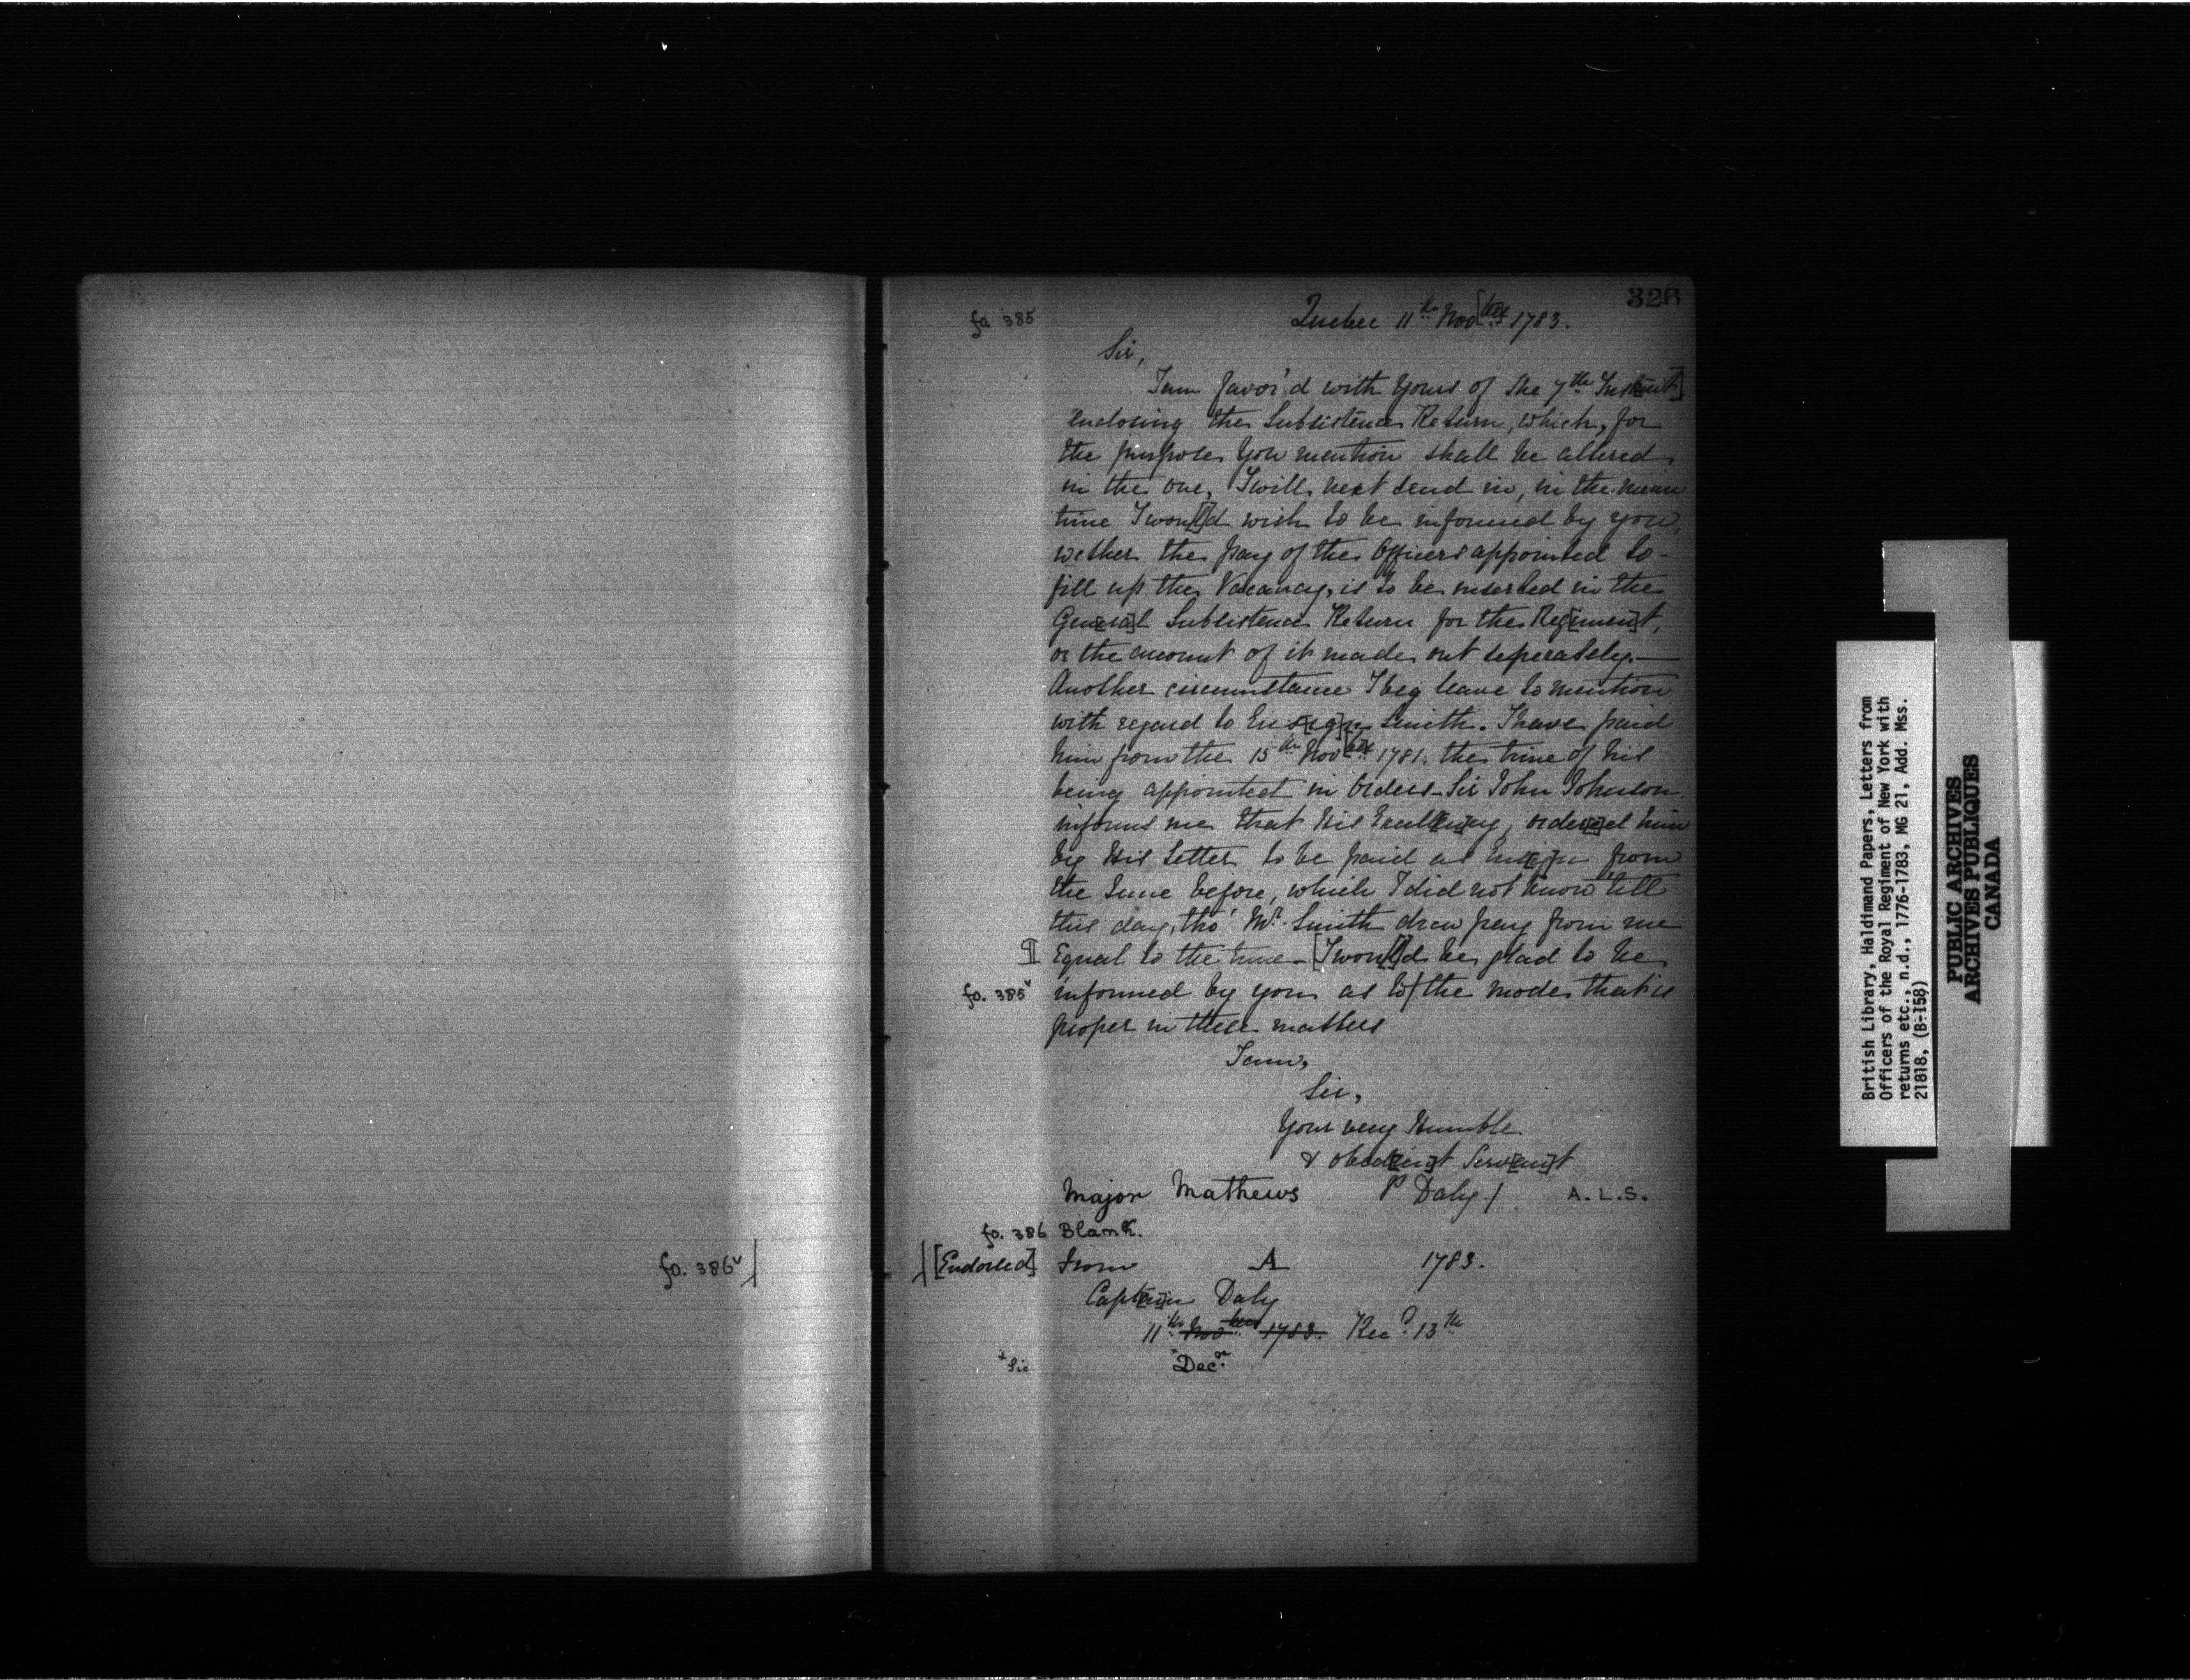 326
fo 385
Quebec 11th Nov[ber] 1783.
Sir,
I am favor'd with Yours of the 7th Inst[ant]
enclosing the Subsistence Return, which, for
the purpose You mention shall be altered
in the one, I will next send in, in the mean
time I wou[l]d wish to be informed by you,
wether the pay of the Officers appointed to-
fill up the Vacancy, is to be inserted in the
Gen[era]l Subsistence Return for the Reg[imen]t,
or the amount of it made out seperately.—
Another circumstance I beg leave to mention
with regard to Ens[ig]n Smith. I have paid
him from the 15th Nov[ber] 1781. the time of his
being appointed in Orders– Sir John Johnson
informs me that His Excell[en]cy, order[e]d him
by His Letter to be paid as Ens[ig]n from
the June before, which I did not know till
this day, tho' Mr. Smith drew pay from me
¶ Equal to the time– [I wou[l]d be glad to be
fo. 385v informed by you as to/the mode that is
proper in these matters
I am,
Sir,
Your very Humble
& obed[ien]t Serv[an]t
Major Mathews P Daly./ A.L.S.
fo. 386 Blank.
fo. 386v/ /[Endorsed] From A 1783.
Capt[ai]n Daly
11th Novber 1783. Recd. 13th
+Sic +Decr.
British Library, Haldimand Papers, Letters from
Officers of the Royal Regiment of New York with
returns etc., n.d., 1776-1783, MG 21, Add. Mss.
21818, (B-158)
PUBLIC ARCHIVES
ARCHIVES PUBLIQUES
CANADA